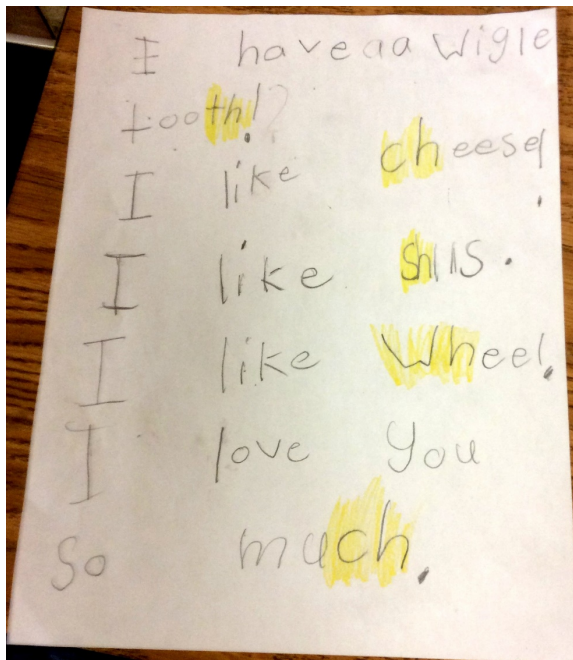 I have aa wigle
tooth!?
I like cheese!.
I like ShllS.
I like Wheel.
I love You
So much.